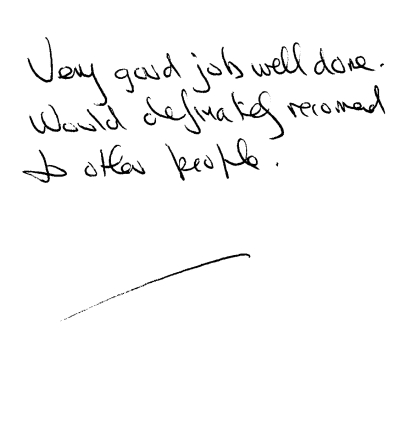 Very good job well done.
Would definately recomed
to other people.